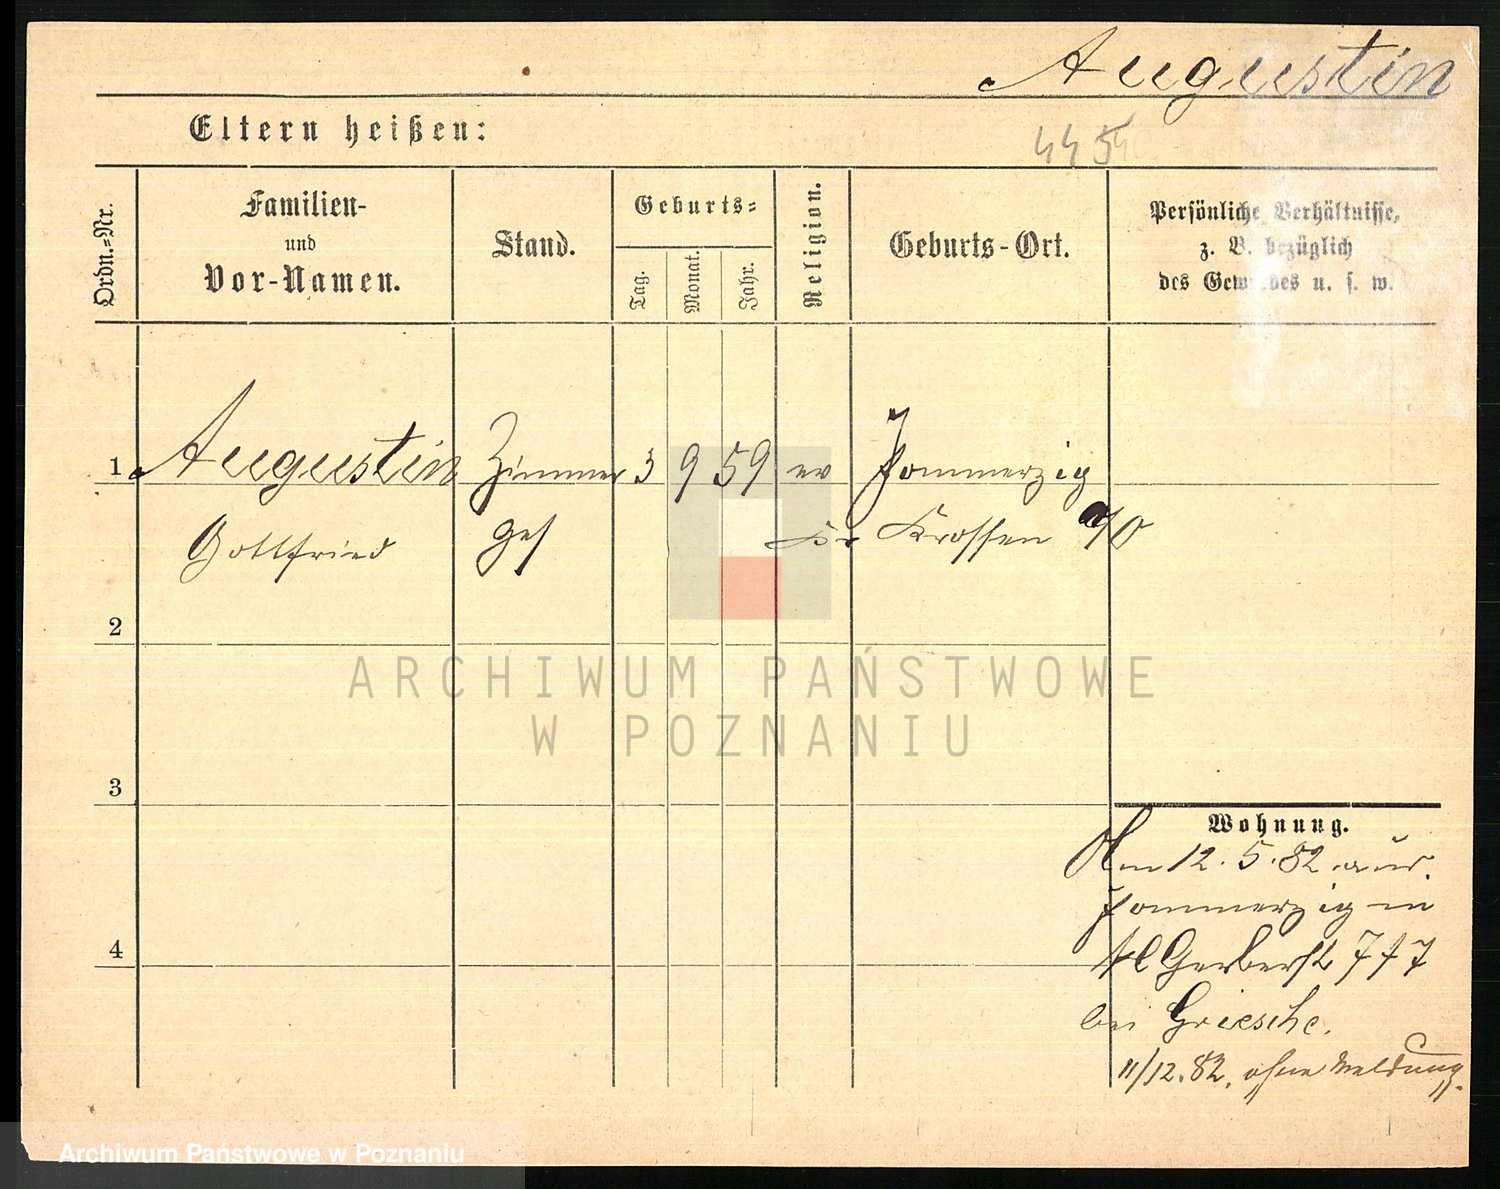 Augustin
Eltern heißen:
4454
Ordn.=Nr.
Familien-
und
Vor-Namen.
Stand.
Geburts=
Tag.
Monat.
Jahr.
Religion.
Geburts-Ort.
Persönliche Verhältnisse,
z. B. bezüglich
des Gewerbes u. s. w.
1 Augustin Zimmer 3 9 59 ev Pommerzig
Gottfried ges Kr Krossen a/O
2
3
4
Wohnung.
Am 12.5.82 aus
Pommerzig in
kl Gerberst 7
bei Griesche.
11/12.82. ohne Meldung.
ARCHIWUM PAŃSTWOWE
W POZNANIU
Archiwum Państwowe w Poznaniu